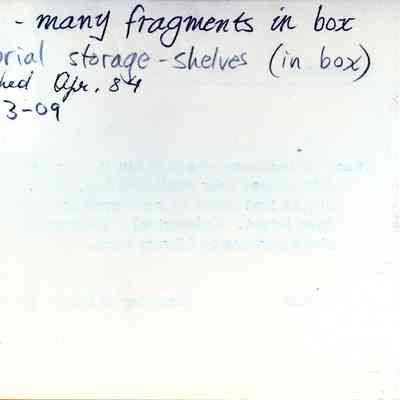 - many fragments in box
orial storage-shelves (in box)
hed Apr. 84
3-09